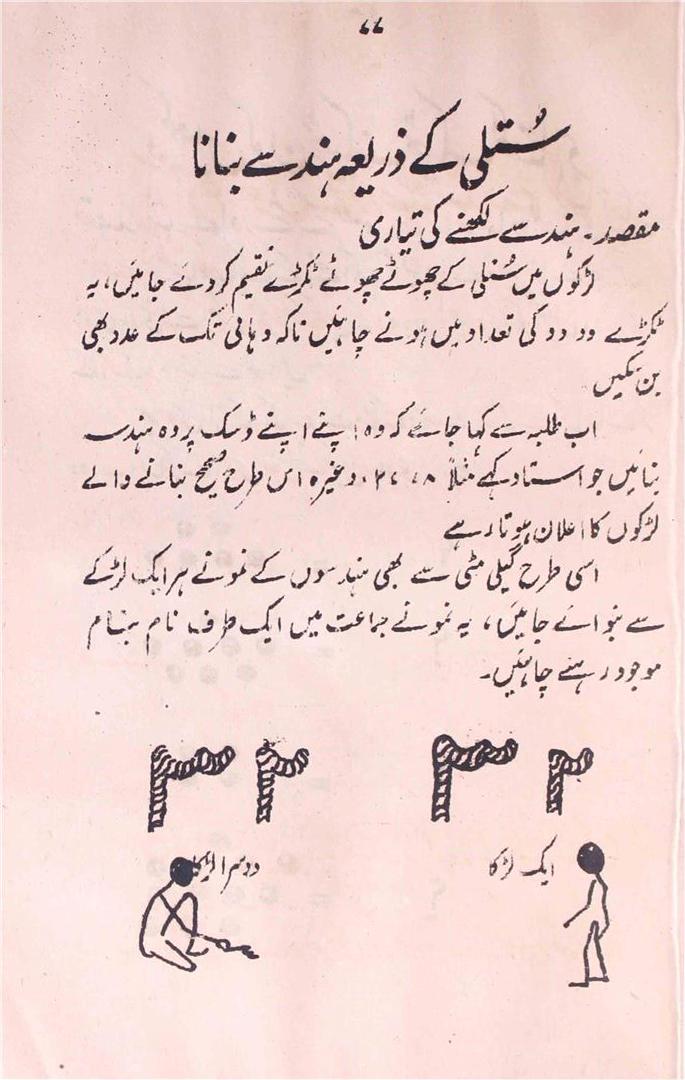 ۷۷
سُتلی کے ذریعہ ہندسے بنانا
مقصد۔ ہندسے لکھنے کی تیاری
لڑکوں میں سُتلی کے چھوٹے چھوٹے ٹکڑے تقسیم کردئے جائیں، یہ
ٹکڑے دو دو کی تعداد میں ہونے چاہئیں تاکہ دہائی تک کے عدد بھی
بن سکیں
اب طلبہ سے کہا جائے کہ وہ اپنے اپنے ڈسک پر وہ ہندسہ
بنائیں جو استاد کہے مثلاً ۸، ۷، ۲۰ وغیرہ اس طرح صحیح بنانے والے
لڑکوں کا اعلان ہوتا رہے
اسی طرح گیلی مٹی سے بھی ہندسوں کے نمونے ہر ایک لڑکے
سے بنوائے جائیں، یہ نمونے جماعت میں ایک طرف نام بنام
موجود رہنے چاہئیں۔
۲ ۳ ۲ ۳
ایک لڑکا دوسرا لڑکا